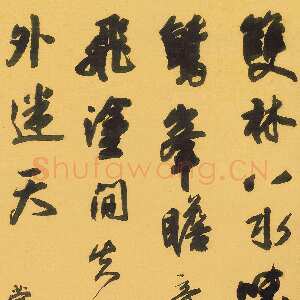 雙林八水味
鷲峯瞻
飛塗間失
外迷天
Shufawang.CN